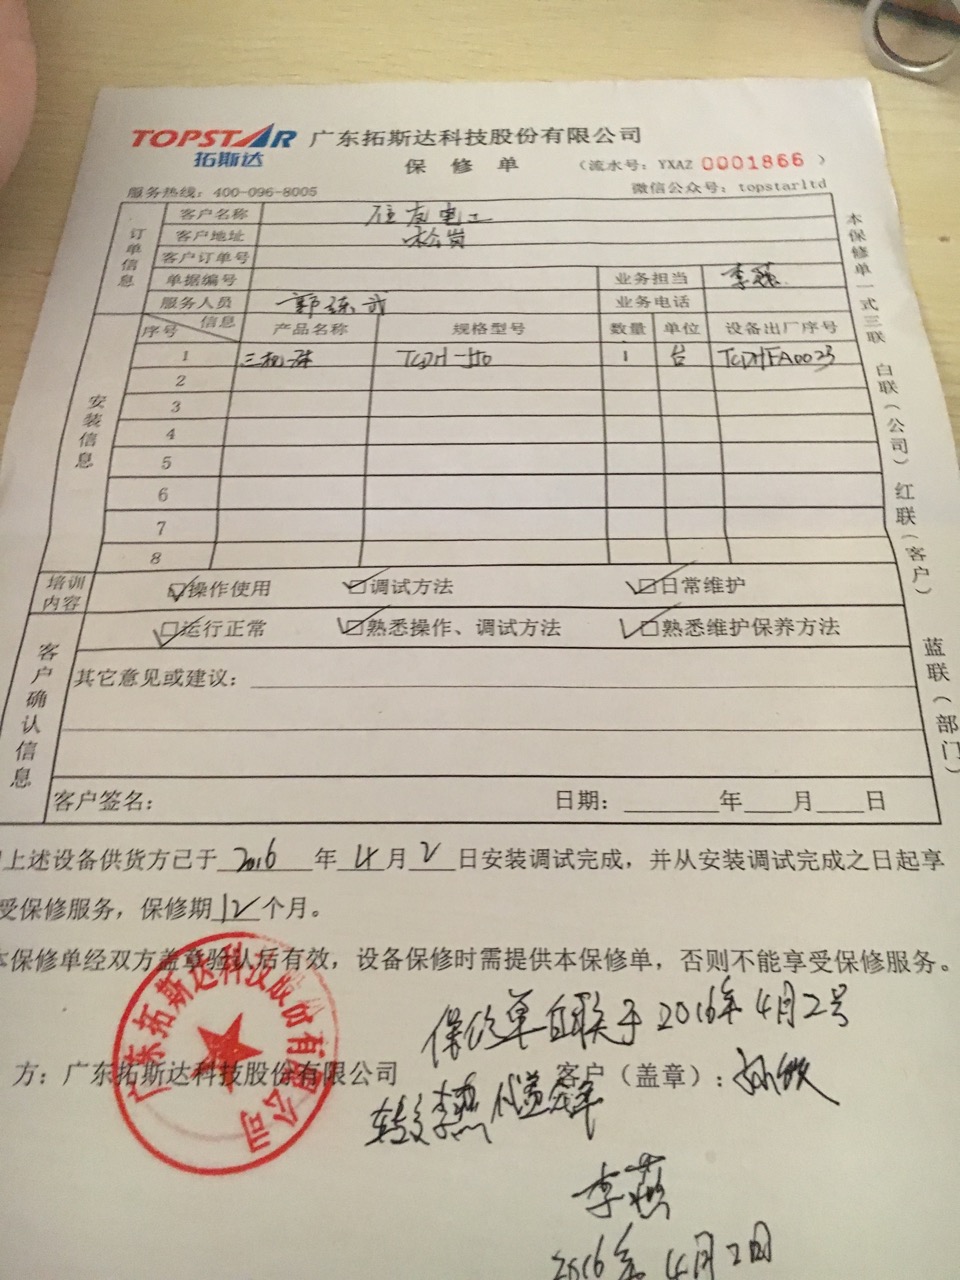 TOPSTAR 广东拓斯达科技股份有限公司
拓斯达 保修单 (流水号: YXAZ 0001866 )
服务热线: 400-096-8005 微信公众号: topstarltd
订单信息
客户名称 住友电工
客户地址 松岗
客户订单号
单据编号 业务担当 李燕
服务人员 郭 业务电话
安装信息
序号 信息 产品名称 规格型号 数量 单位 设备出厂序号
1 三机 TCDH-150 1 台 TCDHFA0023
2
3
4
5
6
7
8
培训内容 操作使用 调试方法 日常维护
客户确认信息
运行正常 熟悉操作、调试方法 熟悉维护保养方法
其它意见或建议:
客户签名: 日期: 年 月 日
本保修单一式三联 白联(公司) 红联(客户) 蓝联(部门)
上述设备供货方已于 2016 年 4 月 2 日安装调试完成，并从安装调试完成之日起享
受保修服务，保修期 12 个月。
本保修单经双方盖章验认后有效，设备保修时需提供本保修单，否则不能享受保修服务。
广东拓斯达科技股份有限公司
保修单白联于2016年4月2号
方: 广东拓斯达科技股份有限公司 客户（盖章）:
转交李燕代盖
李燕
2016年4月2日